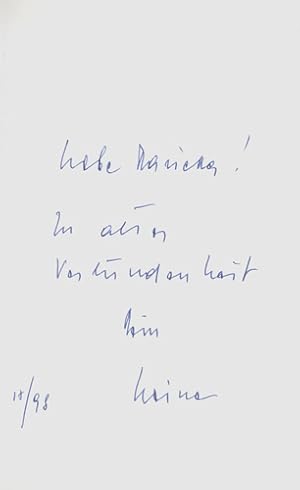 Liebe Marieta!
In alter
Verbundenheit
Dein
Heiner